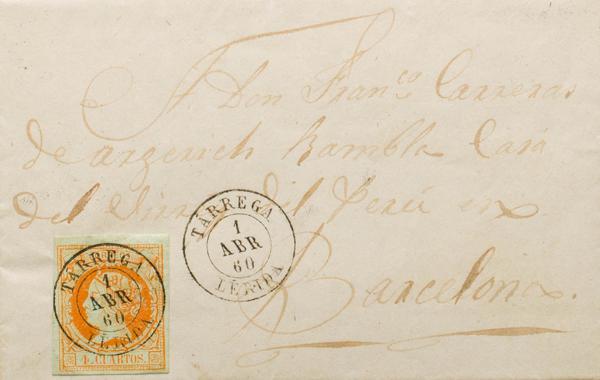 A. Don Fran.co Carreras
de argerich Rambla Casa
del Virrey del Perú en
Barcelona.
TÁRREGA
1
ABR
60
LÉRIDA
TÁRREGA
1
ABR
60
LÉRIDA
4 CUARTOS.